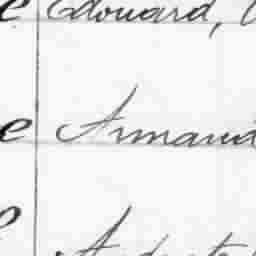 e Edouard,
e Armand